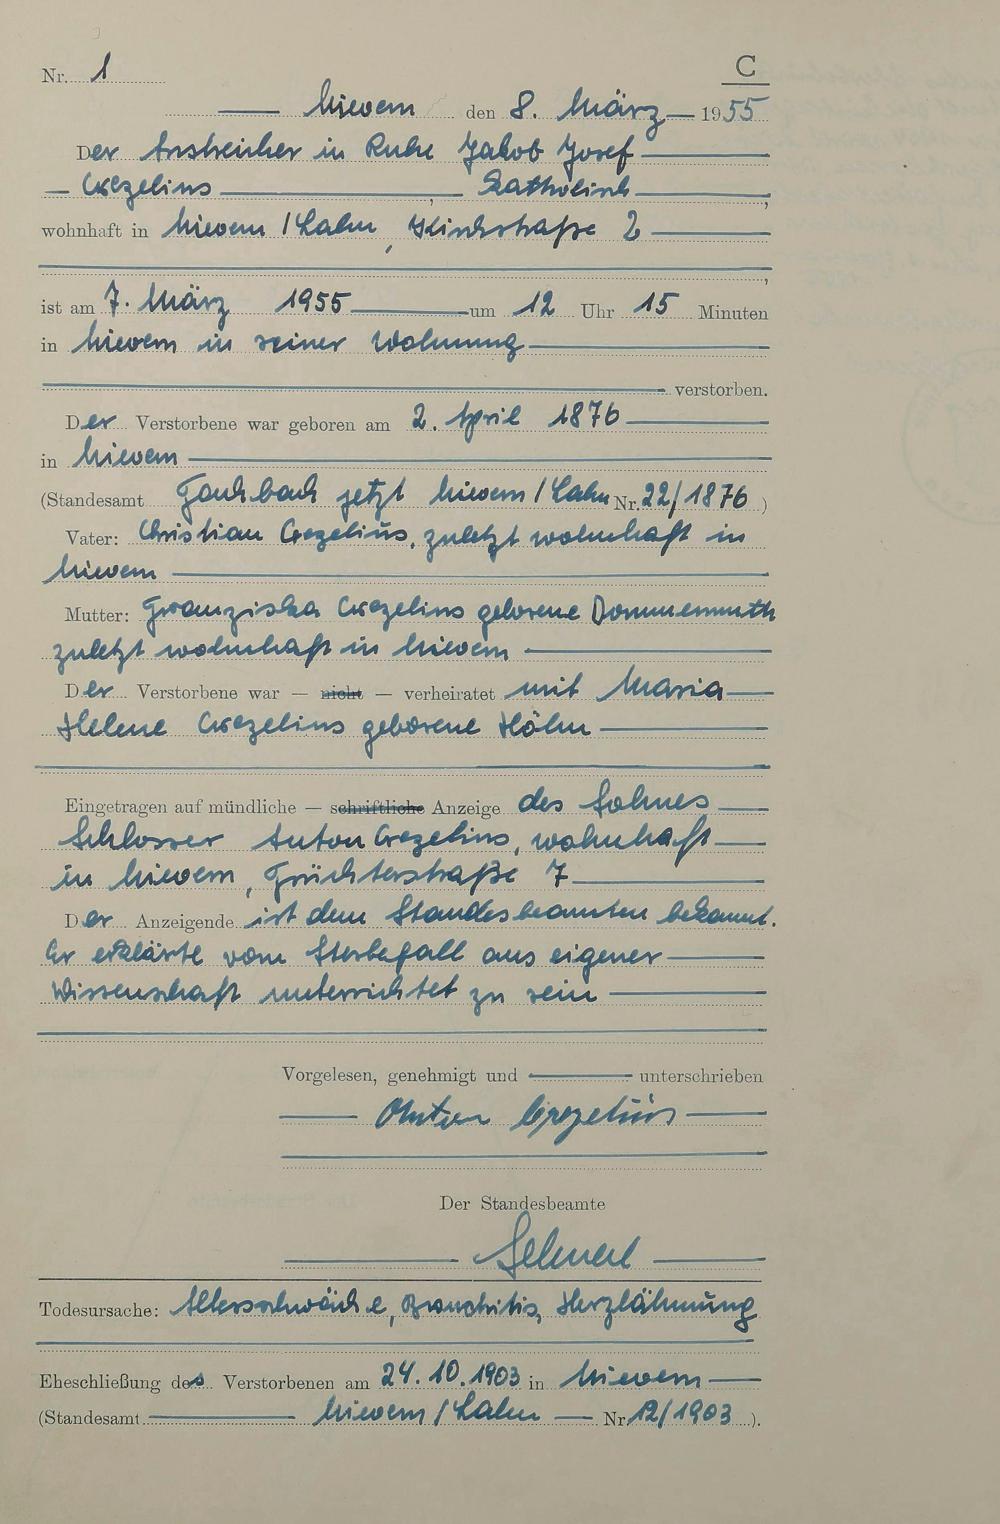 Nr. 1
C
Nievern den 8. März 1955
Der Anstreicher in Ruhe Jakob Josef
Crezelius, Katholisch,
wohnhaft in Nievern / Lahn, Kirchstraße 2
,
ist am 7. März 1955 um 12 Uhr 15 Minuten
in Nievern in seiner Wohnung
verstorben.
Der Verstorbene war geboren am 2. April 1876
in Nievern
(Standesamt Fachbach jetzt Nievern / Lahn Nr. 22/1876)
Vater: Christian Crezelius, zuletzt wohnhaft in
Nievern
Mutter: Franziska Crezelius geborene Dommermuth
zuletzt wohnhaft in Nievern
Der Verstorbene war — nicht — verheiratet mit Maria
Helene Crezelius geborene Höhn
Eingetragen auf mündliche — schriftliche Anzeige des Sohnes
Schlosser Anton Crezelius, wohnhaft
in Nievern, Früchterstraße 7
Der Anzeigende ist dem Standesbeamten bekannt.
Er erklärte vom Sterbefall aus eigener
Wissenschaft unterrichtet zu sein
Vorgelesen, genehmigt und unterschrieben
Anton Crezelius
Der Standesbeamte
Todesursache: Altersschwäche, Bronchitis, Herzlähmung
Eheschließung des Verstorbenen am 24.10.1903 in Nievern
(Standesamt Nievern / Lahn — Nr 12/1903).